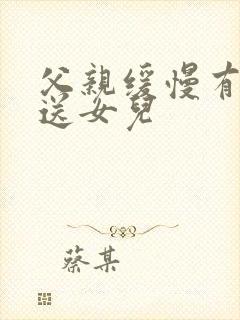 父親緩慢有
送女兒
蔡某